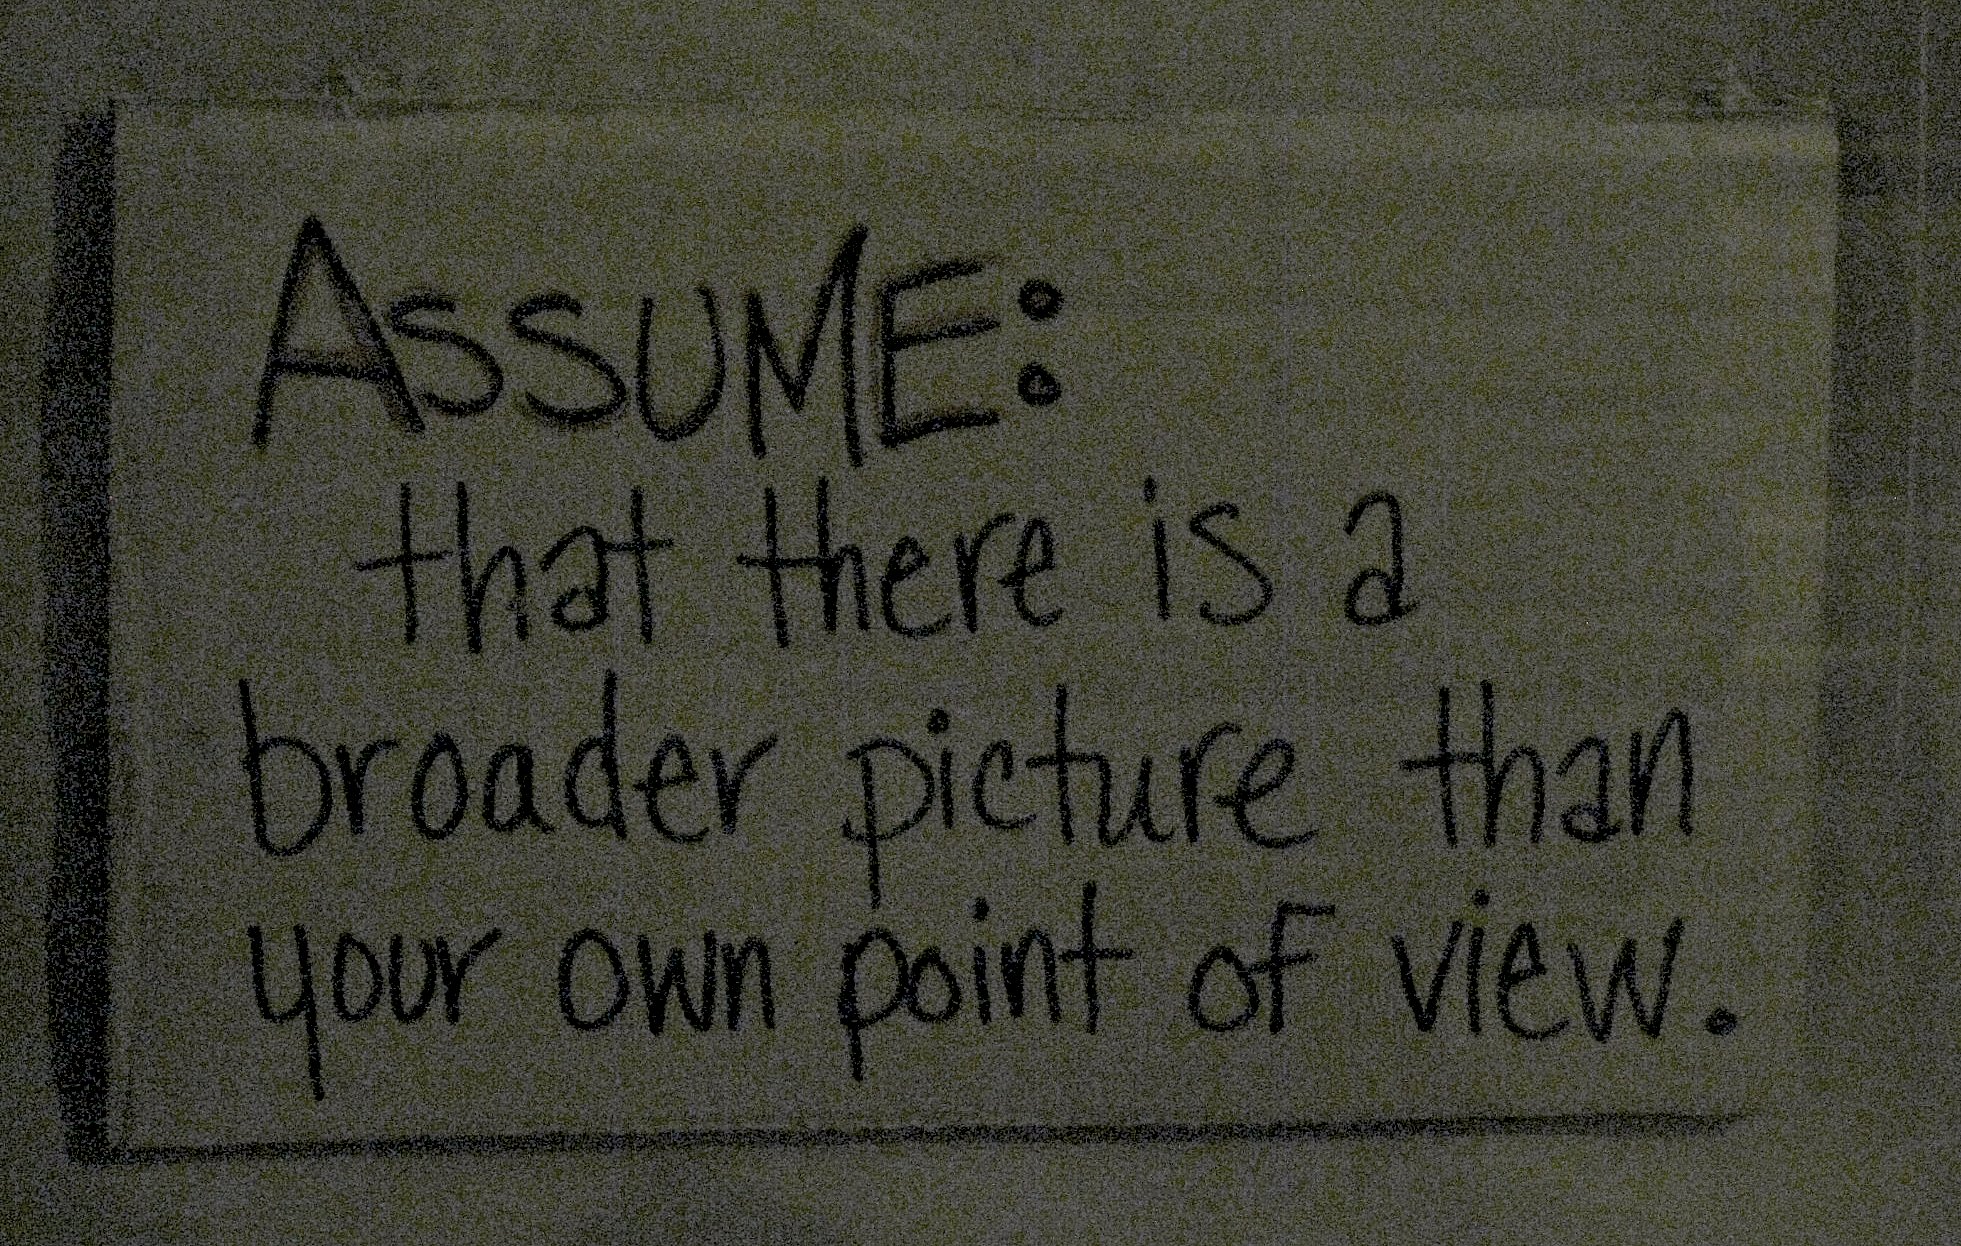 ASSUME:
that there is a
broader picture than
your own point of view.